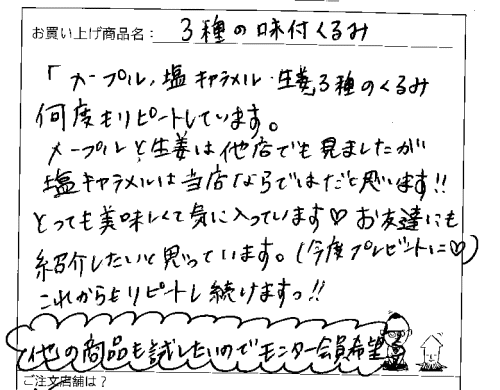 お買い上げ商品名： 3種の味付くるみ
「メープル、塩キャラメル・生姜」3種のくるみ
何度もリピートしています。
メープルと生姜は他店でも見ましたが
塩キャラメルは当店ならではだと思います!!
とっても美味しくて気に入っています♡ お友達にも
紹介したいと思っています。(今度プレゼントに♡)
これからもリピートし続けますっ!!
他の商品も試したいのでモニター会員希望
ご注文店舗は？